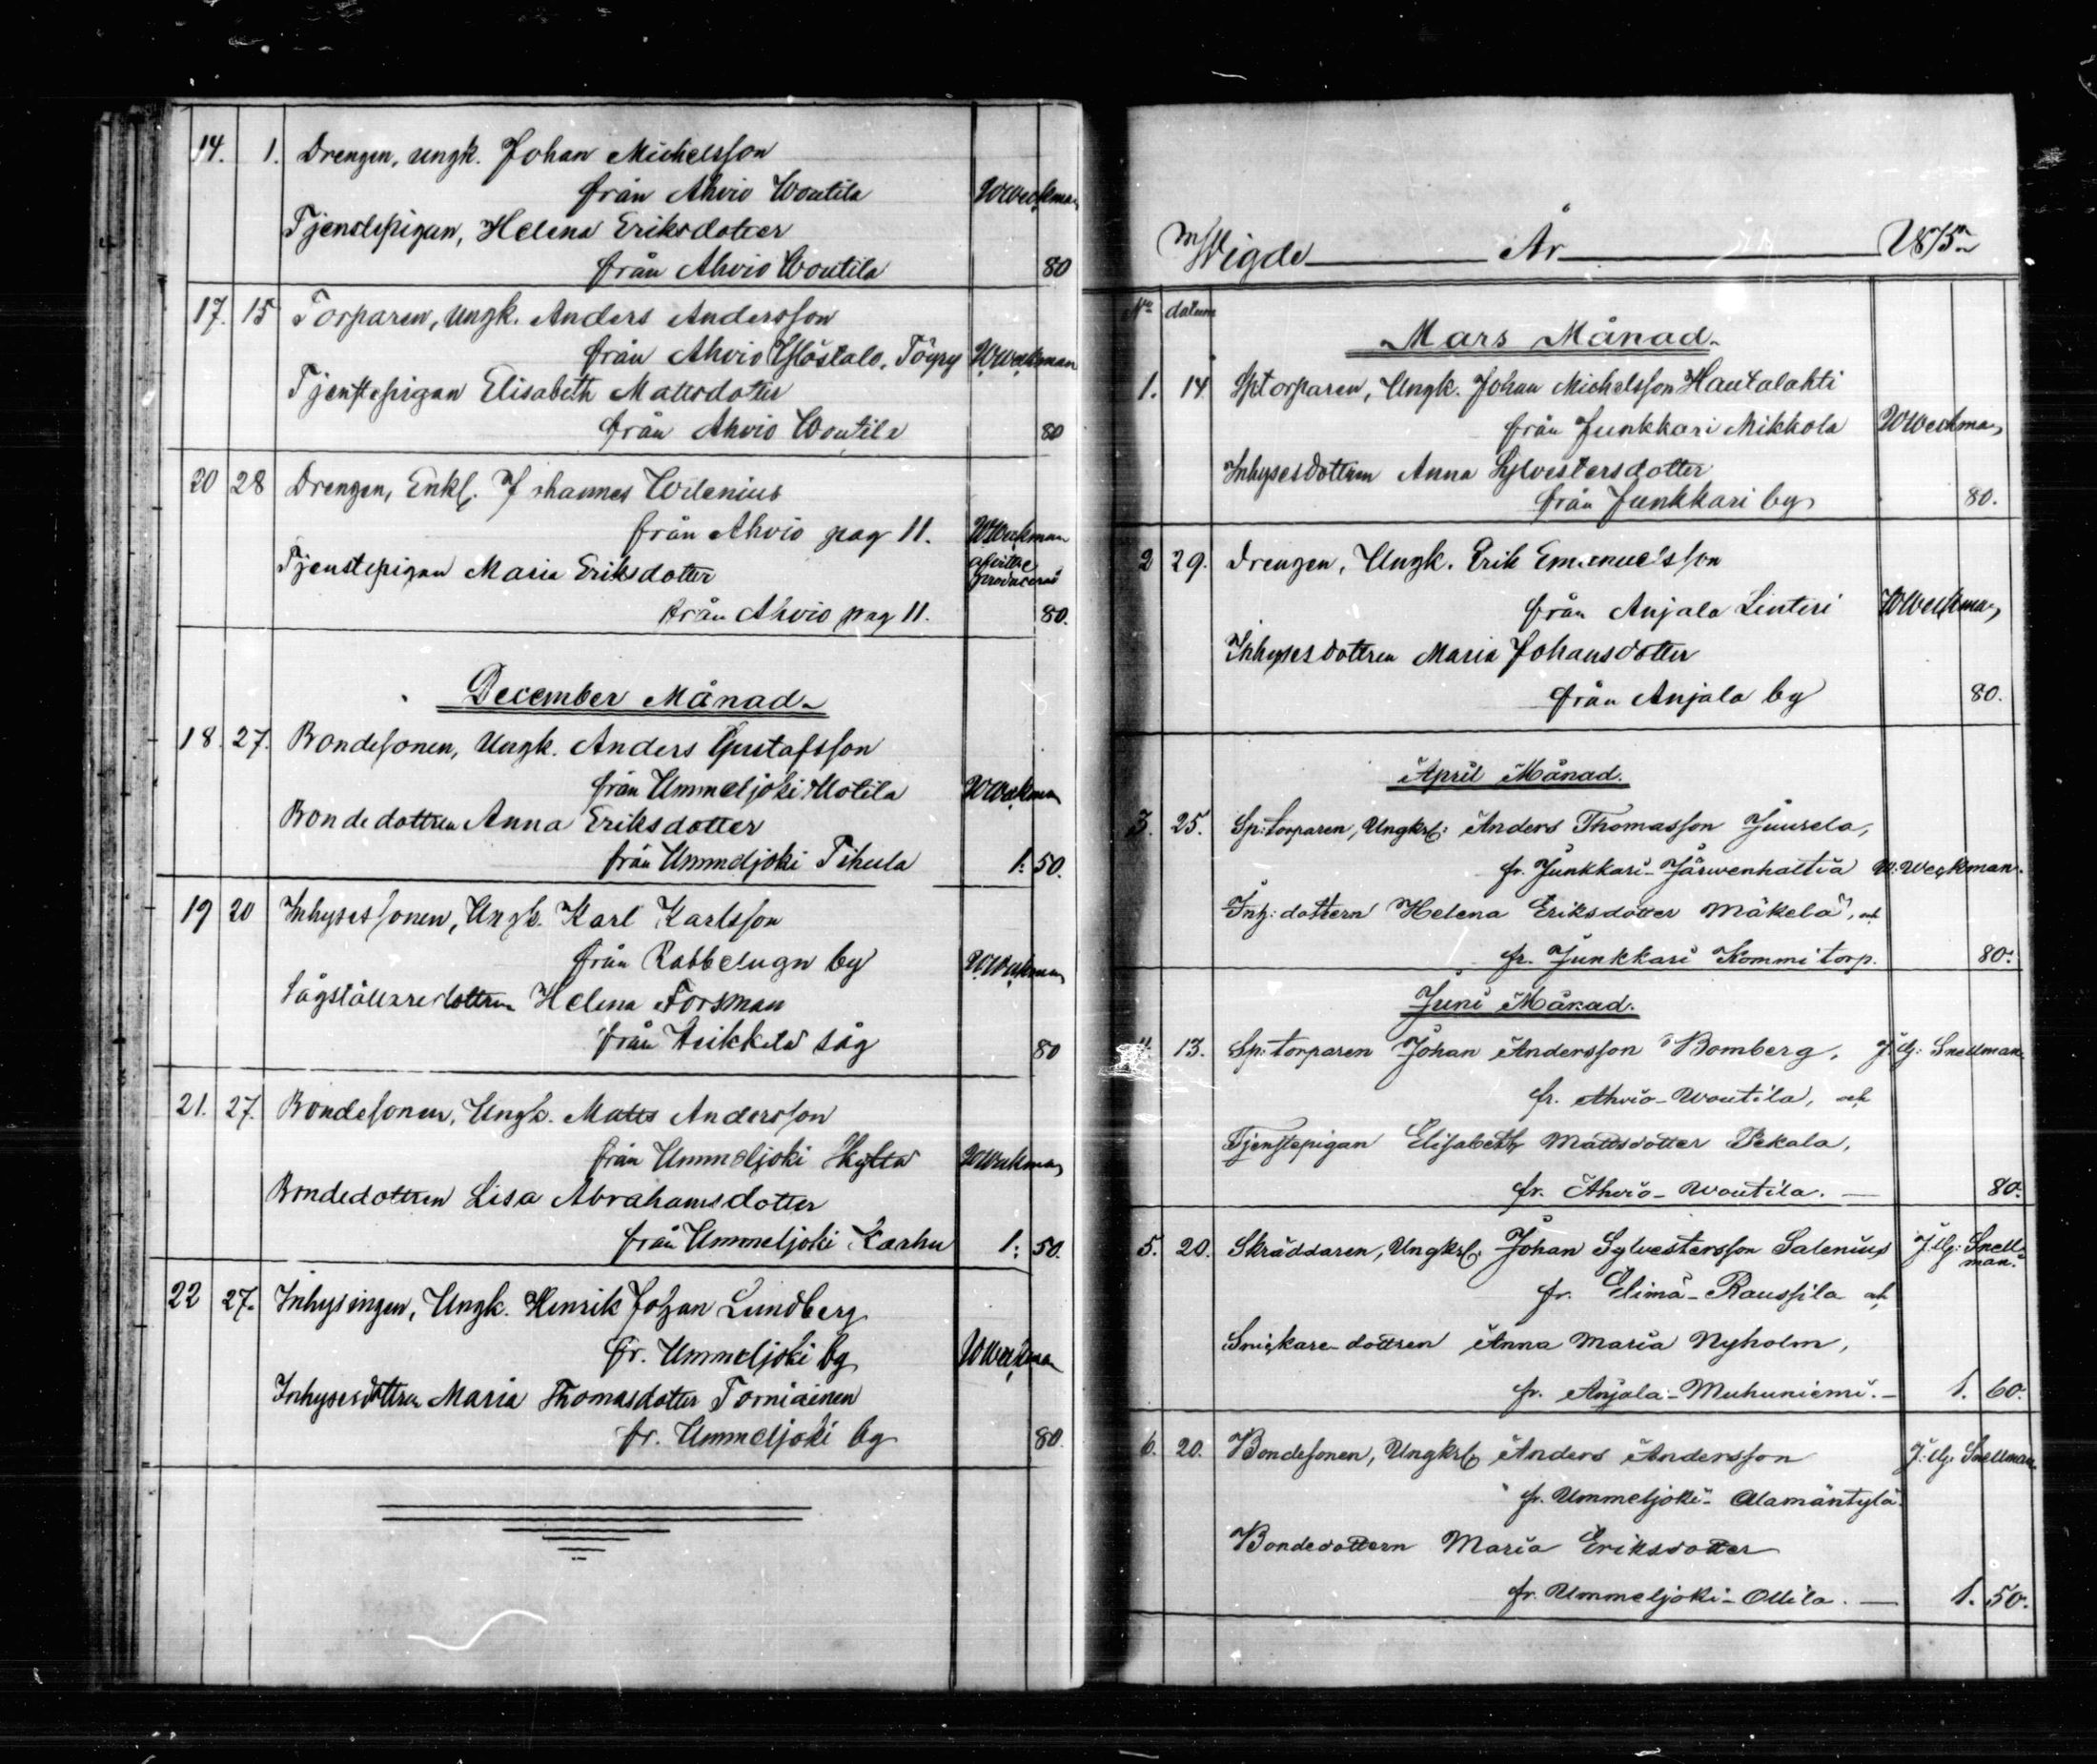 14. 1. Drengen, ungk. Johan Michelsson
från Ahvio Woutila WWeckman
Tjenstepigan, Helena Eriksdotter
från Ahvio Woutila 80
17. 15 Torparen, Ungk. Anders Andersson
från Ahvio Yllöstalo, Töyry WWeckman
Tjenstepigan Elisabeth Mattsdotter
från Ahvio Woutila 80
20 28 Drengen, Enkl. Johannes Wilenius
från Ahvio pag 11. WWeckman
Tjenstepigan Maria Eriksdotter
från Ahvio pag 11. 80.
December Månad
18. 27. Bondesonen, Ungk. Anders Gustafsson
från Ummeljoki Motila WWeckman
Bondedottren Anna Eriksdotter
från Ummeljoki Tihula 1: 50.
19 20 Inhysessonen, Ungk. Karl Karlsson
från Rabbelugn by WWeckman
Sågställaredottren Helena Forsman
från såg 80
21. 27. Bondesonen, Ungk. Matts Andersson
från Ummeljoki Hyltä WWeckman
Bondedottren Lisa Abrahamsdotter
från Ummeljoki Karhu 1: 50.
22 27. Inhysingen, Ungk. Henrik Johan Lundberg
fr. Ummeljoki by WWeckman
Inhysesdottren Maria Thomasdotter Torniainen
fr. Ummeljoki by 80.
Wigde År 1875
No datum
Mars Månad.
1. 14 Sptorparen, Ungk. Johan Michelsson Hautalahti
från Junkkari Mikkola WWeckman
Inhysesdottren Anna Sylvestersdotter
från Junkkari by 80.
2 29. Drengen, Ungk. Erik Emanuelsson
från Anjala Linteri WWeckman
Inhysesdottren Maria Johansdotter
från Anjala by 80.
April Månad.
3. 25. Sp: torparen, Ungkrl: Anders Thomasson Juurela,
fr. Junkkari-Järwenhaltia W: Weckman.
Inh: dottern Helena Eriksdotter Mäkelä, och
fr. Junkkari Kommi torp. 80.
Juni Månad.
4. 13. Sp: torparen Johan Andersson Bomberg, Snellman.
fr. Ahvio-Woutila, och
Tjenstepigan Elisabeth Mattsdotter Pekala,
fr. Ahvio-Woutila. — 80.
5. 20. Skräddaren, Ungkrl. Johan Sylvestersson Salenius Snell-
man.
fr. Elimä-Raussila och
Snickare-dottren Anna Maria Nyholm,
fr. Anjala-Muhuniemi. — 1. 60.
6. 20. Bondesonen, Ungkrl Anders Andersson Snellman.
fr. Ummeljoki-Alamäntylä.
Bondedottern Maria Eriksdotter
fr. Ummeljoki-Ollila. — 1. 50.